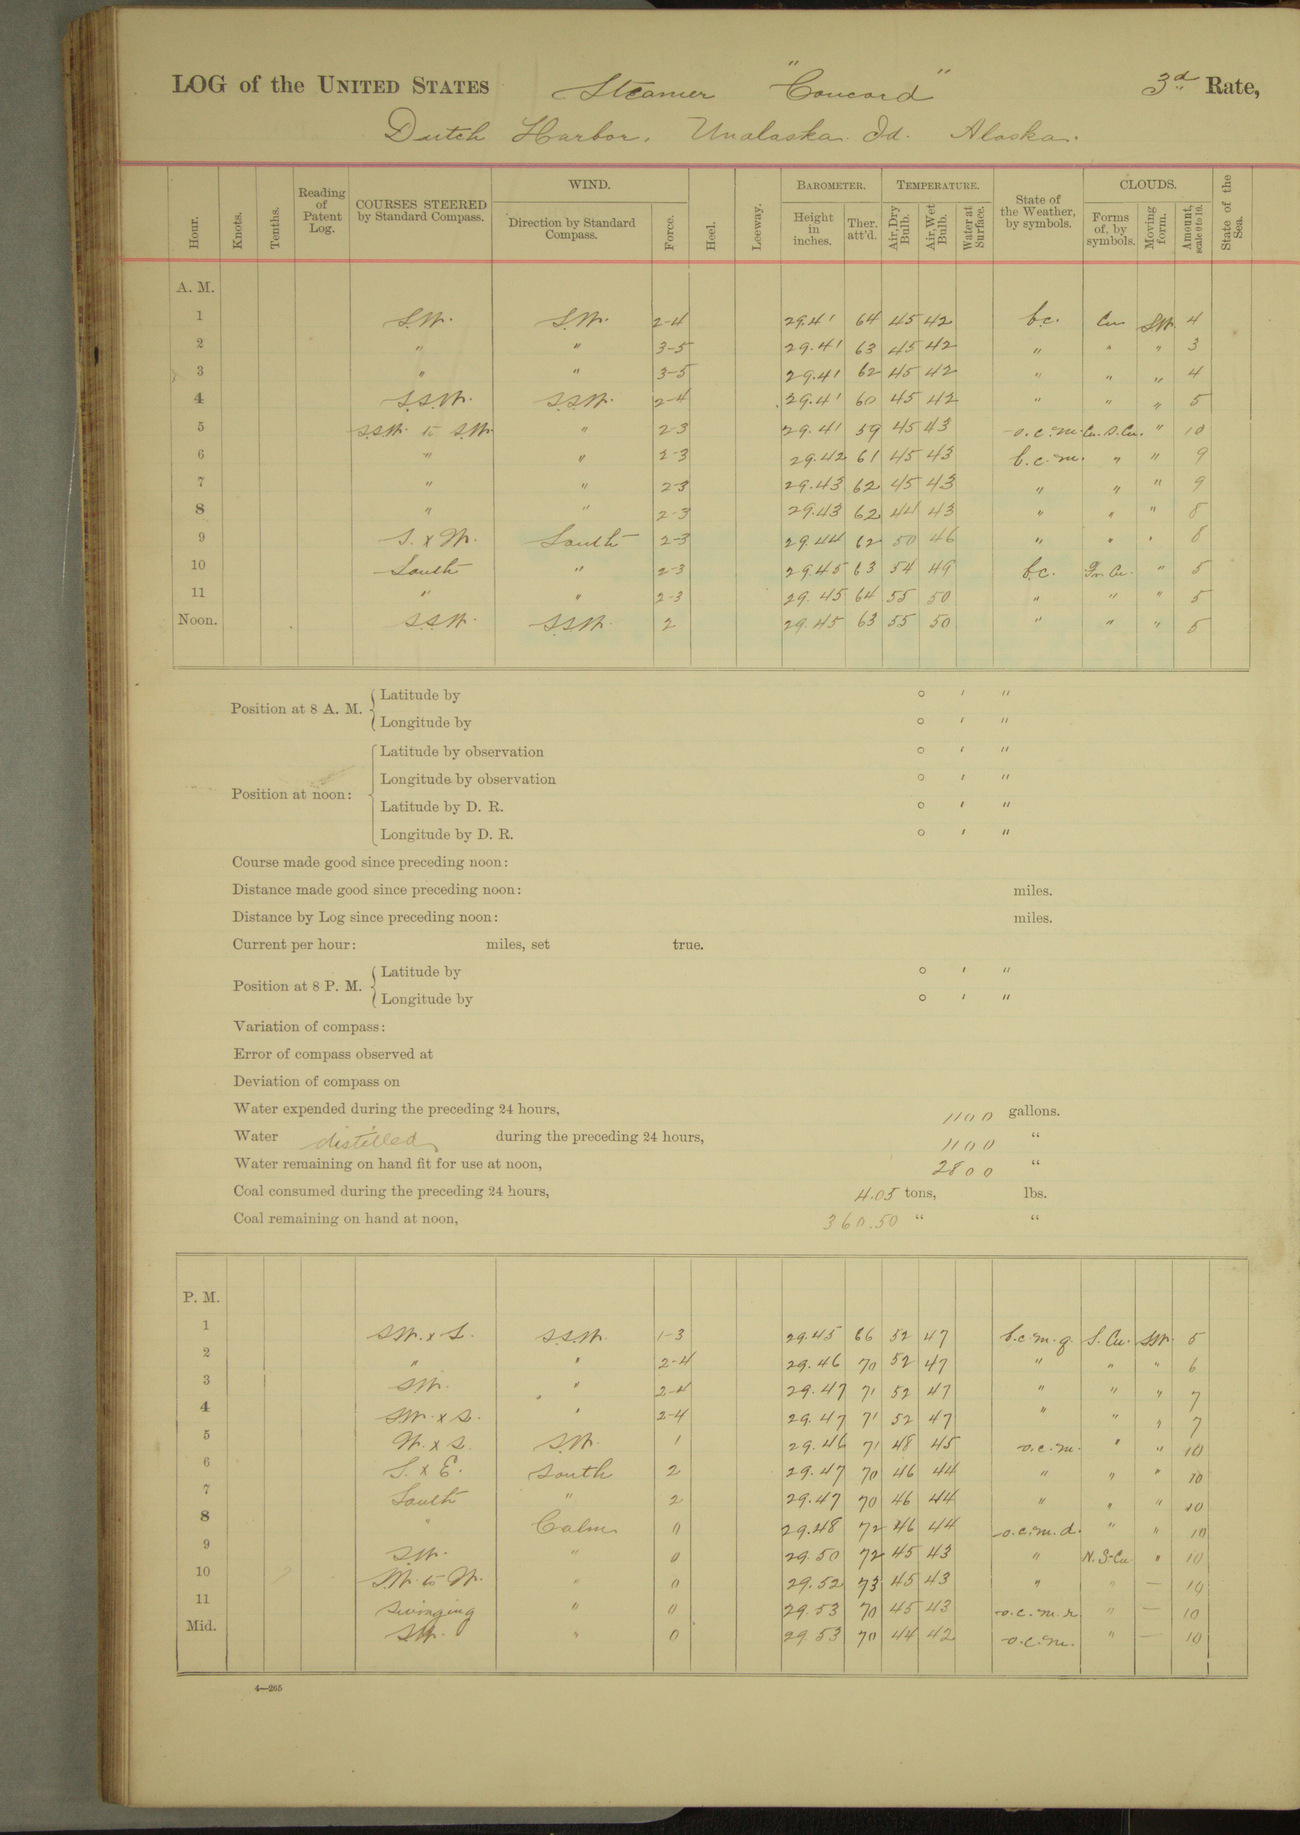 LOG of the UNITED STATES Steamer "Concord" 3d Rate,
Dutch Harbor, Unalaska Id. Alaska.
Hour. Knots. Tenths. Reading of Patent Log. COURSES STEERED by Standard Compass. WIND. Direction by Standard Compass. Force. Heel. Leeway. BAROMETER. Height in inches. Ther. att'd. TEMPERATURE. Air, Dry Bulb. Air, Wet Bulb. Water at Surface. State of the Weather, by symbols. CLOUDS. Forms of, by symbols. Moving form. Amount, scale 0 to 10. State of the Sea.
A. M.
1 S.W. S.W. 2-4 29.41 64 45 42 b.c. Cu SW 4
2 " " 3-5 29.41 63 45 42 " " " 3
3 " " 3-5 29.41 62 45 42 " " " 4
4 S.S.W. S.S.W. 2-4 29.41 60 45 42 " " " 5
5 S.S.W. to S.W. " 2-3 29.41 59 45 43 o.c.m. Cu. S.Cu. " 10
6 " " 2-3 29.42 61 45 43 b.c.m. " " 9
7 " " 2-3 29.43 62 45 43 " " " 9
8 " " 2-3 29.43 62 44 43 " " " 8
9 S. x W. South 2-3 29.44 62 50 46 " " " 8
10 South " 2-3 29.45 63 54 49 b.c. Cu. " 5
11 " " 2-3 29.45 64 55 50 " " " 5
Noon. S.S.W. S.S.W. 2 29.45 63 55 50 " " " 5
Position at 8 A. M. { Latitude by ° ′ ″
Longitude by ° ′ ″
Position at noon: { Latitude by observation ° ′ ″
Longitude by observation ° ′ ″
Latitude by D. R. ° ′ ″
Longitude by D. R. ° ′ ″
Course made good since preceding noon:
Distance made good since preceding noon: miles.
Distance by Log since preceding noon: miles.
Current per hour: miles, set true.
Position at 8 P. M. { Latitude by ° ′ ″
Longitude by ° ′ ″
Variation of compass:
Error of compass observed at
Deviation of compass on
Water expended during the preceding 24 hours, 1100 gallons.
Water distilled during the preceding 24 hours, 1100 "
Water remaining on hand fit for use at noon, 2800 "
Coal consumed during the preceding 24 hours, 4.05 tons, lbs.
Coal remaining on hand at noon, 360.50 " "
P. M.
1 SW. x S. S.S.W. 1-3 29.45 66 52 47 b.c.m.q. S.Cu. SW. 5
2 " " 2-4 29.46 70 52 47 " " " 6
3 SW. " 2-4 29.47 71 52 47 " " " 7
4 SW. x S. " 2-4 29.47 71 52 47 " " " 7
5 W. x S. S.W. 1 29.46 71 48 45 o.c.m. " " 10
6 S. x E. South 2 29.47 70 46 44 " " " 10
7 South " 2 29.47 70 46 44 " " " 10
8 " Calm 0 29.48 72 46 44 o.c.m.d. " " 10
9 S.W. " 0 29.50 72 45 43 " N. S-Cu. " 10
10 SW. to W. " 0 29.52 73 45 43 " " — 10
11 Swinging " 0 29.53 70 45 43 o.c.m.r. " — 10
Mid. SW. " 0 29.53 70 44 42 o.c.m. " — 10
4—265